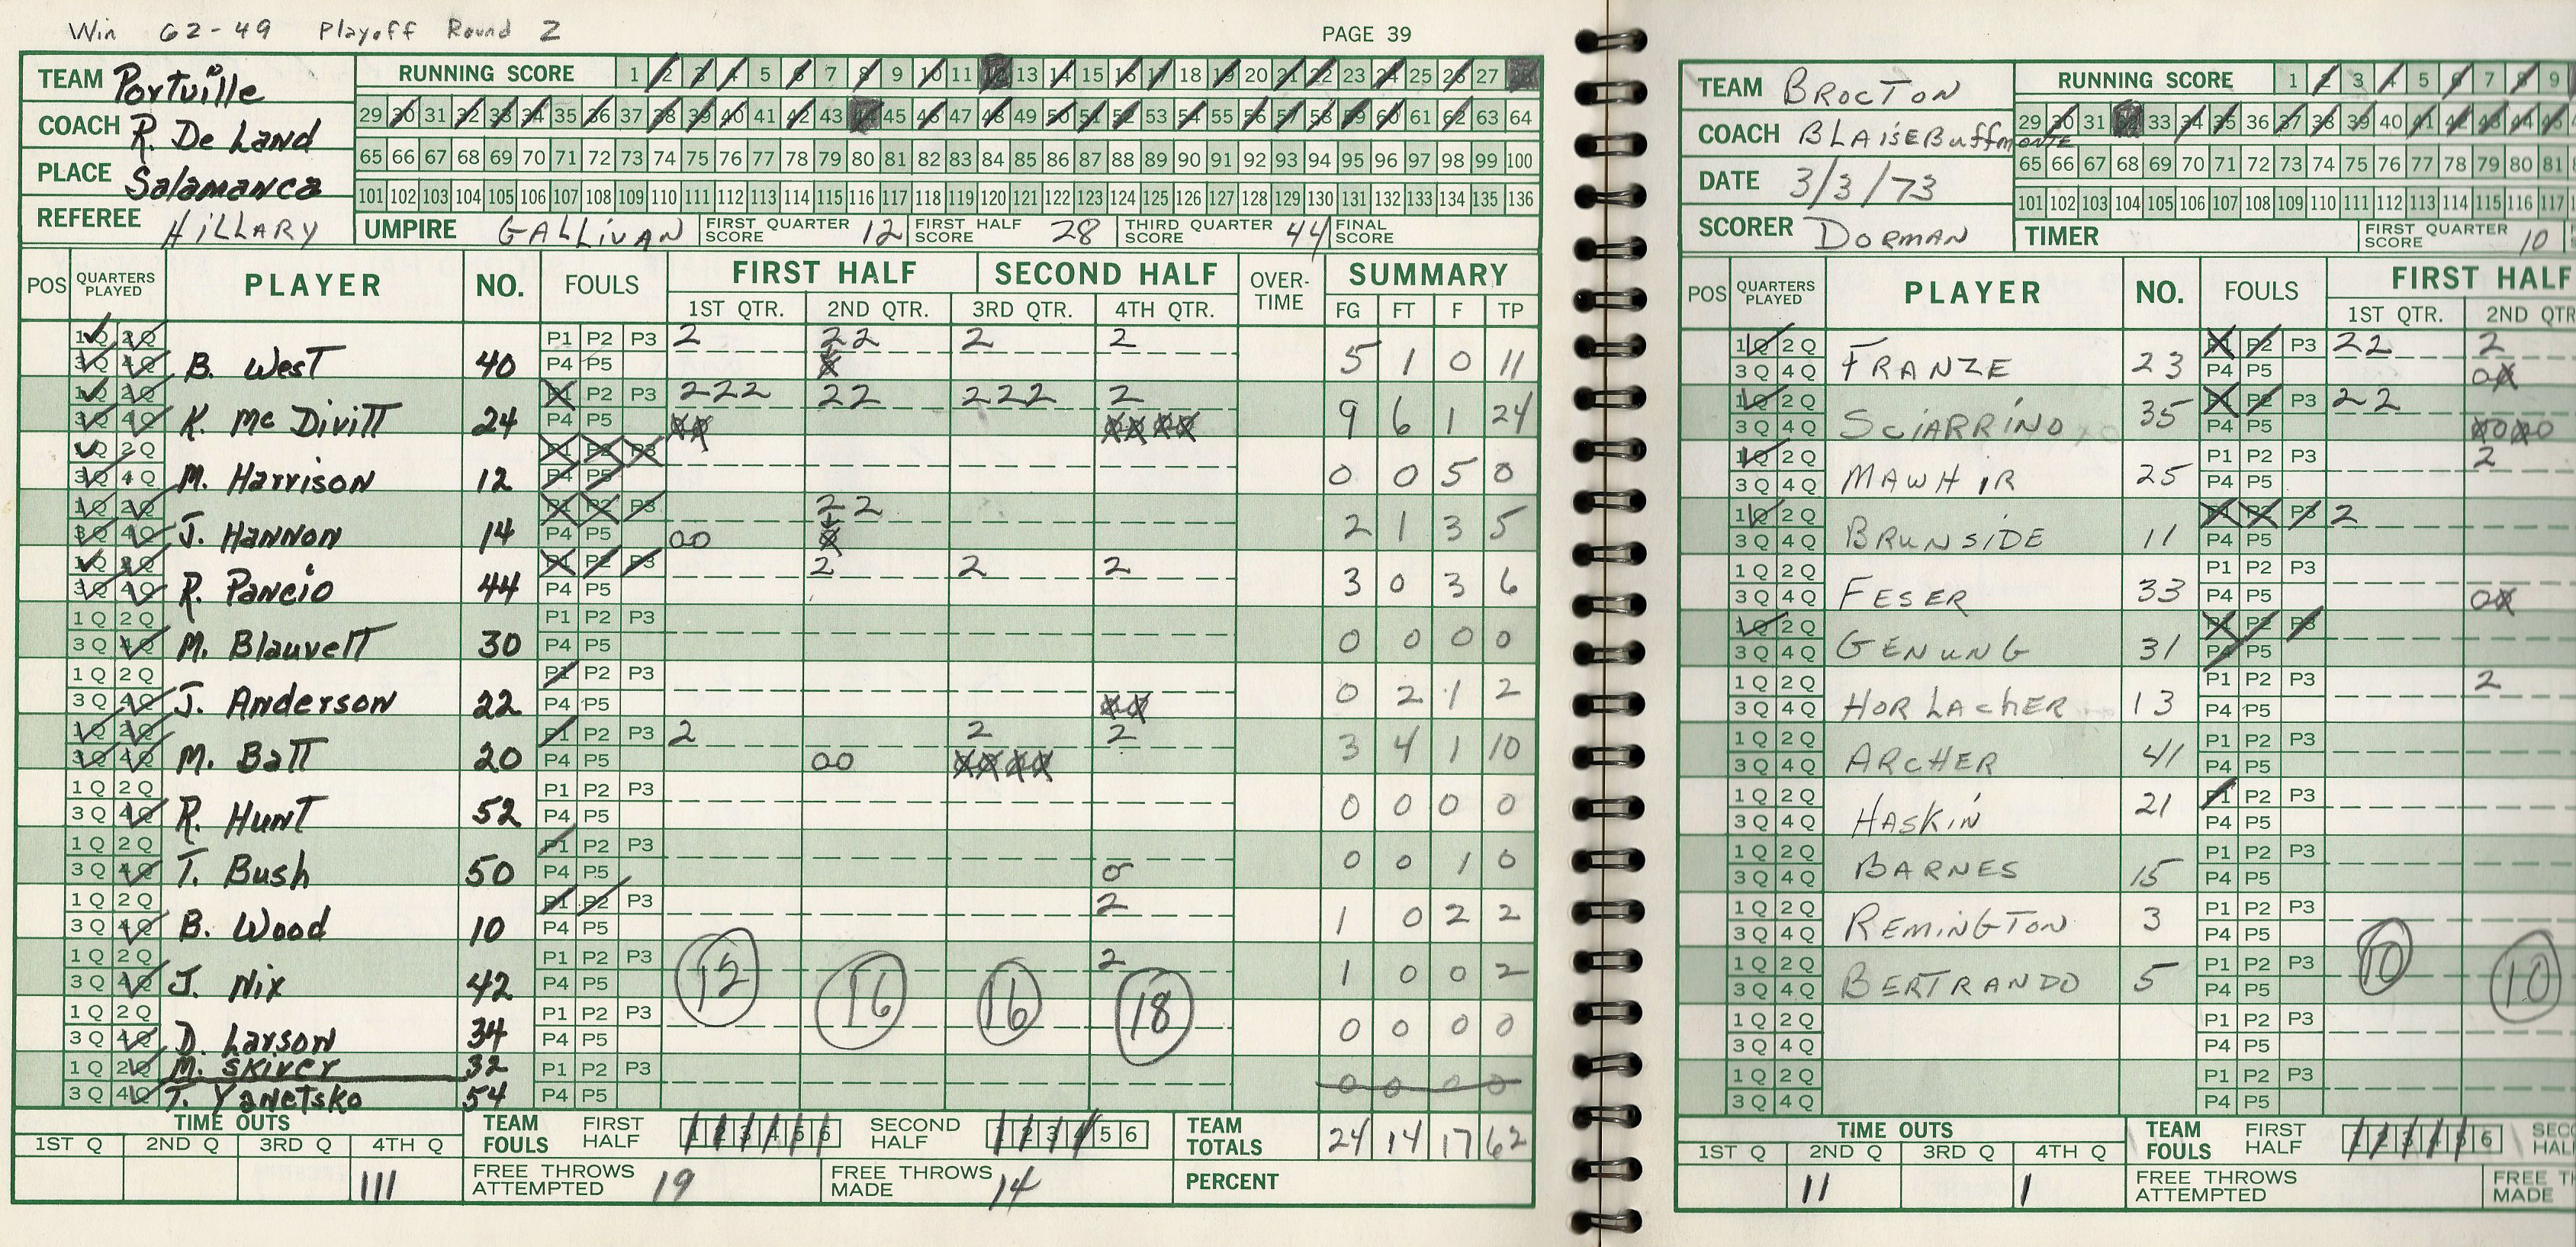 Win 62-49 Playoff Round 2
PAGE 39
TEAM Portville
COACH R. De Land
PLACE Salamanca
REFEREE HILLARY
RUNNING SCORE 1 2 3 4 5 6 7 8 9 10 11 12 13 14 15 16 17 18 19 20 21 22 23 24 25 26 27 28
29 30 31 32 33 34 35 36 37 38 39 40 41 42 43 44 45 46 47 48 49 50 51 52 53 54 55 56 57 58 59 60 61 62 63 64
65 66 67 68 69 70 71 72 73 74 75 76 77 78 79 80 81 82 83 84 85 86 87 88 89 90 91 92 93 94 95 96 97 98 99 100
101 102 103 104 105 106 107 108 109 110 111 112 113 114 115 116 117 118 119 120 121 122 123 124 125 126 127 128 129 130 131 132 133 134 135 136
UMPIRE GALLIVAN FIRST QUARTER SCORE 12 FIRST HALF SCORE 28 THIRD QUARTER SCORE 44 FINAL SCORE
POS QUARTERS PLAYED PLAYER NO. FOULS FIRST HALF SECOND HALF OVER-TIME SUMMARY
1ST QTR. 2ND QTR. 3RD QTR. 4TH QTR. FG FT F TP
1Q 2Q P1 P2 P3 2 22 2 2
3Q 4Q B. West 40 P4 P5 X 5 1 0 11
1Q 2Q P1 P2 P3 222 22 222 2
3Q 4Q K. McDivitt 24 P4 P5 XX XXXX 9 6 1 24
1Q 2Q P1 P2 P3
3Q 4Q M. Harrison 12 P4 P5 0 0 5 0
1Q 2Q P1 P2 P3 22
3Q 4Q J. Hannon 14 P4 P5 00 X 2 1 3 5
1Q 2Q P1 P2 P3 2 2 2
3Q 4Q R. Pancio 44 P4 P5 3 0 3 6
1Q 2Q P1 P2 P3
3Q 4Q M. Blauvelt 30 P4 P5 0 0 0 0
1Q 2Q P1 P2 P3
3Q 4Q J. Anderson 22 P4 P5 XX 0 2 1 2
1Q 2Q P1 P2 P3 2 2 2
3Q 4Q M. Ball 20 P4 P5 00 XXXX 3 4 1 10
1Q 2Q P1 P2 P3
3Q 4Q R. Hunt 52 P4 P5 0 0 0 0
1Q 2Q P1 P2 P3
3Q 4Q T. Bush 50 P4 P5 0 0 0 1 0
1Q 2Q P1 P2 P3 2
3Q 4Q B. Wood 10 P4 P5 1 0 2 2
1Q 2Q P1 P2 P3 2
3Q 4Q J. Nix 42 P4 P5 12 16 16 18 1 0 0 2
1Q 2Q P1 P2 P3
3Q 4Q D. Larson 34 P4 P5 0 0 0 0
1Q 2Q M. Skiver 32 P1 P2 P3
3Q 4Q T. Yanetsko 54 P4 P5 0 0 0 0
TIME OUTS TEAM FOULS FIRST HALF 1 2 3 4 5 6 SECOND HALF 1 2 3 4 5 6 TEAM TOTALS 24 14 17 62
1ST Q 2ND Q 3RD Q 4TH Q
111 FREE THROWS ATTEMPTED 19 FREE THROWS MADE 14 PERCENT
TEAM BROCTON
COACH BLAISE Buffmonte
DATE 3/3/73
SCORER DORMAN
RUNNING SCORE 1 2 3 4 5 6 7 8 9
29 30 31 32 33 34 35 36 37 38 39 40 41 42 43 44 45
65 66 67 68 69 70 71 72 73 74 75 76 77 78 79 80 81
101 102 103 104 105 106 107 108 109 110 111 112 113 114 115 116 117
TIMER FIRST QUARTER SCORE 10
POS QUARTERS PLAYED PLAYER NO. FOULS FIRST HALF
1ST QTR. 2ND QTR
1Q 2Q P1 P2 P3 22 2
3Q 4Q FRANZE 23 P4 P5 0X
1Q 2Q P1 P2 P3 22
3Q 4Q SCIARRINO 35 P4 P5 X0X0
1Q 2Q P1 P2 P3 2
3Q 4Q MAWHIR 25 P4 P5
1Q 2Q P1 P2 P3 2
3Q 4Q BRUNSIDE 11 P4 P5
1Q 2Q P1 P2 P3
3Q 4Q FESER 33 P4 P5 0X
1Q 2Q P1 P2 P3
3Q 4Q GENUNG 31 P4 P5
1Q 2Q P1 P2 P3 2
3Q 4Q HORLACHER 13 P4 P5
1Q 2Q P1 P2 P3
3Q 4Q ARCHER 41 P4 P5
1Q 2Q P1 P2 P3
3Q 4Q HASKIN 21 P4 P5
1Q 2Q P1 P2 P3
3Q 4Q BARNES 15 P4 P5
1Q 2Q P1 P2 P3
3Q 4Q REMINGTON 3 P4 P5
1Q 2Q P1 P2 P3 10 10
3Q 4Q BERTRANDO 5 P4 P5
1Q 2Q P1 P2 P3
3Q 4Q P4 P5
1Q 2Q P1 P2 P3
3Q 4Q P4 P5
TIME OUTS TEAM FOULS FIRST HALF 1 2 3 4 5 6
1ST Q 2ND Q 3RD Q 4TH Q
11 1 FREE THROWS ATTEMPTED FREE MADE